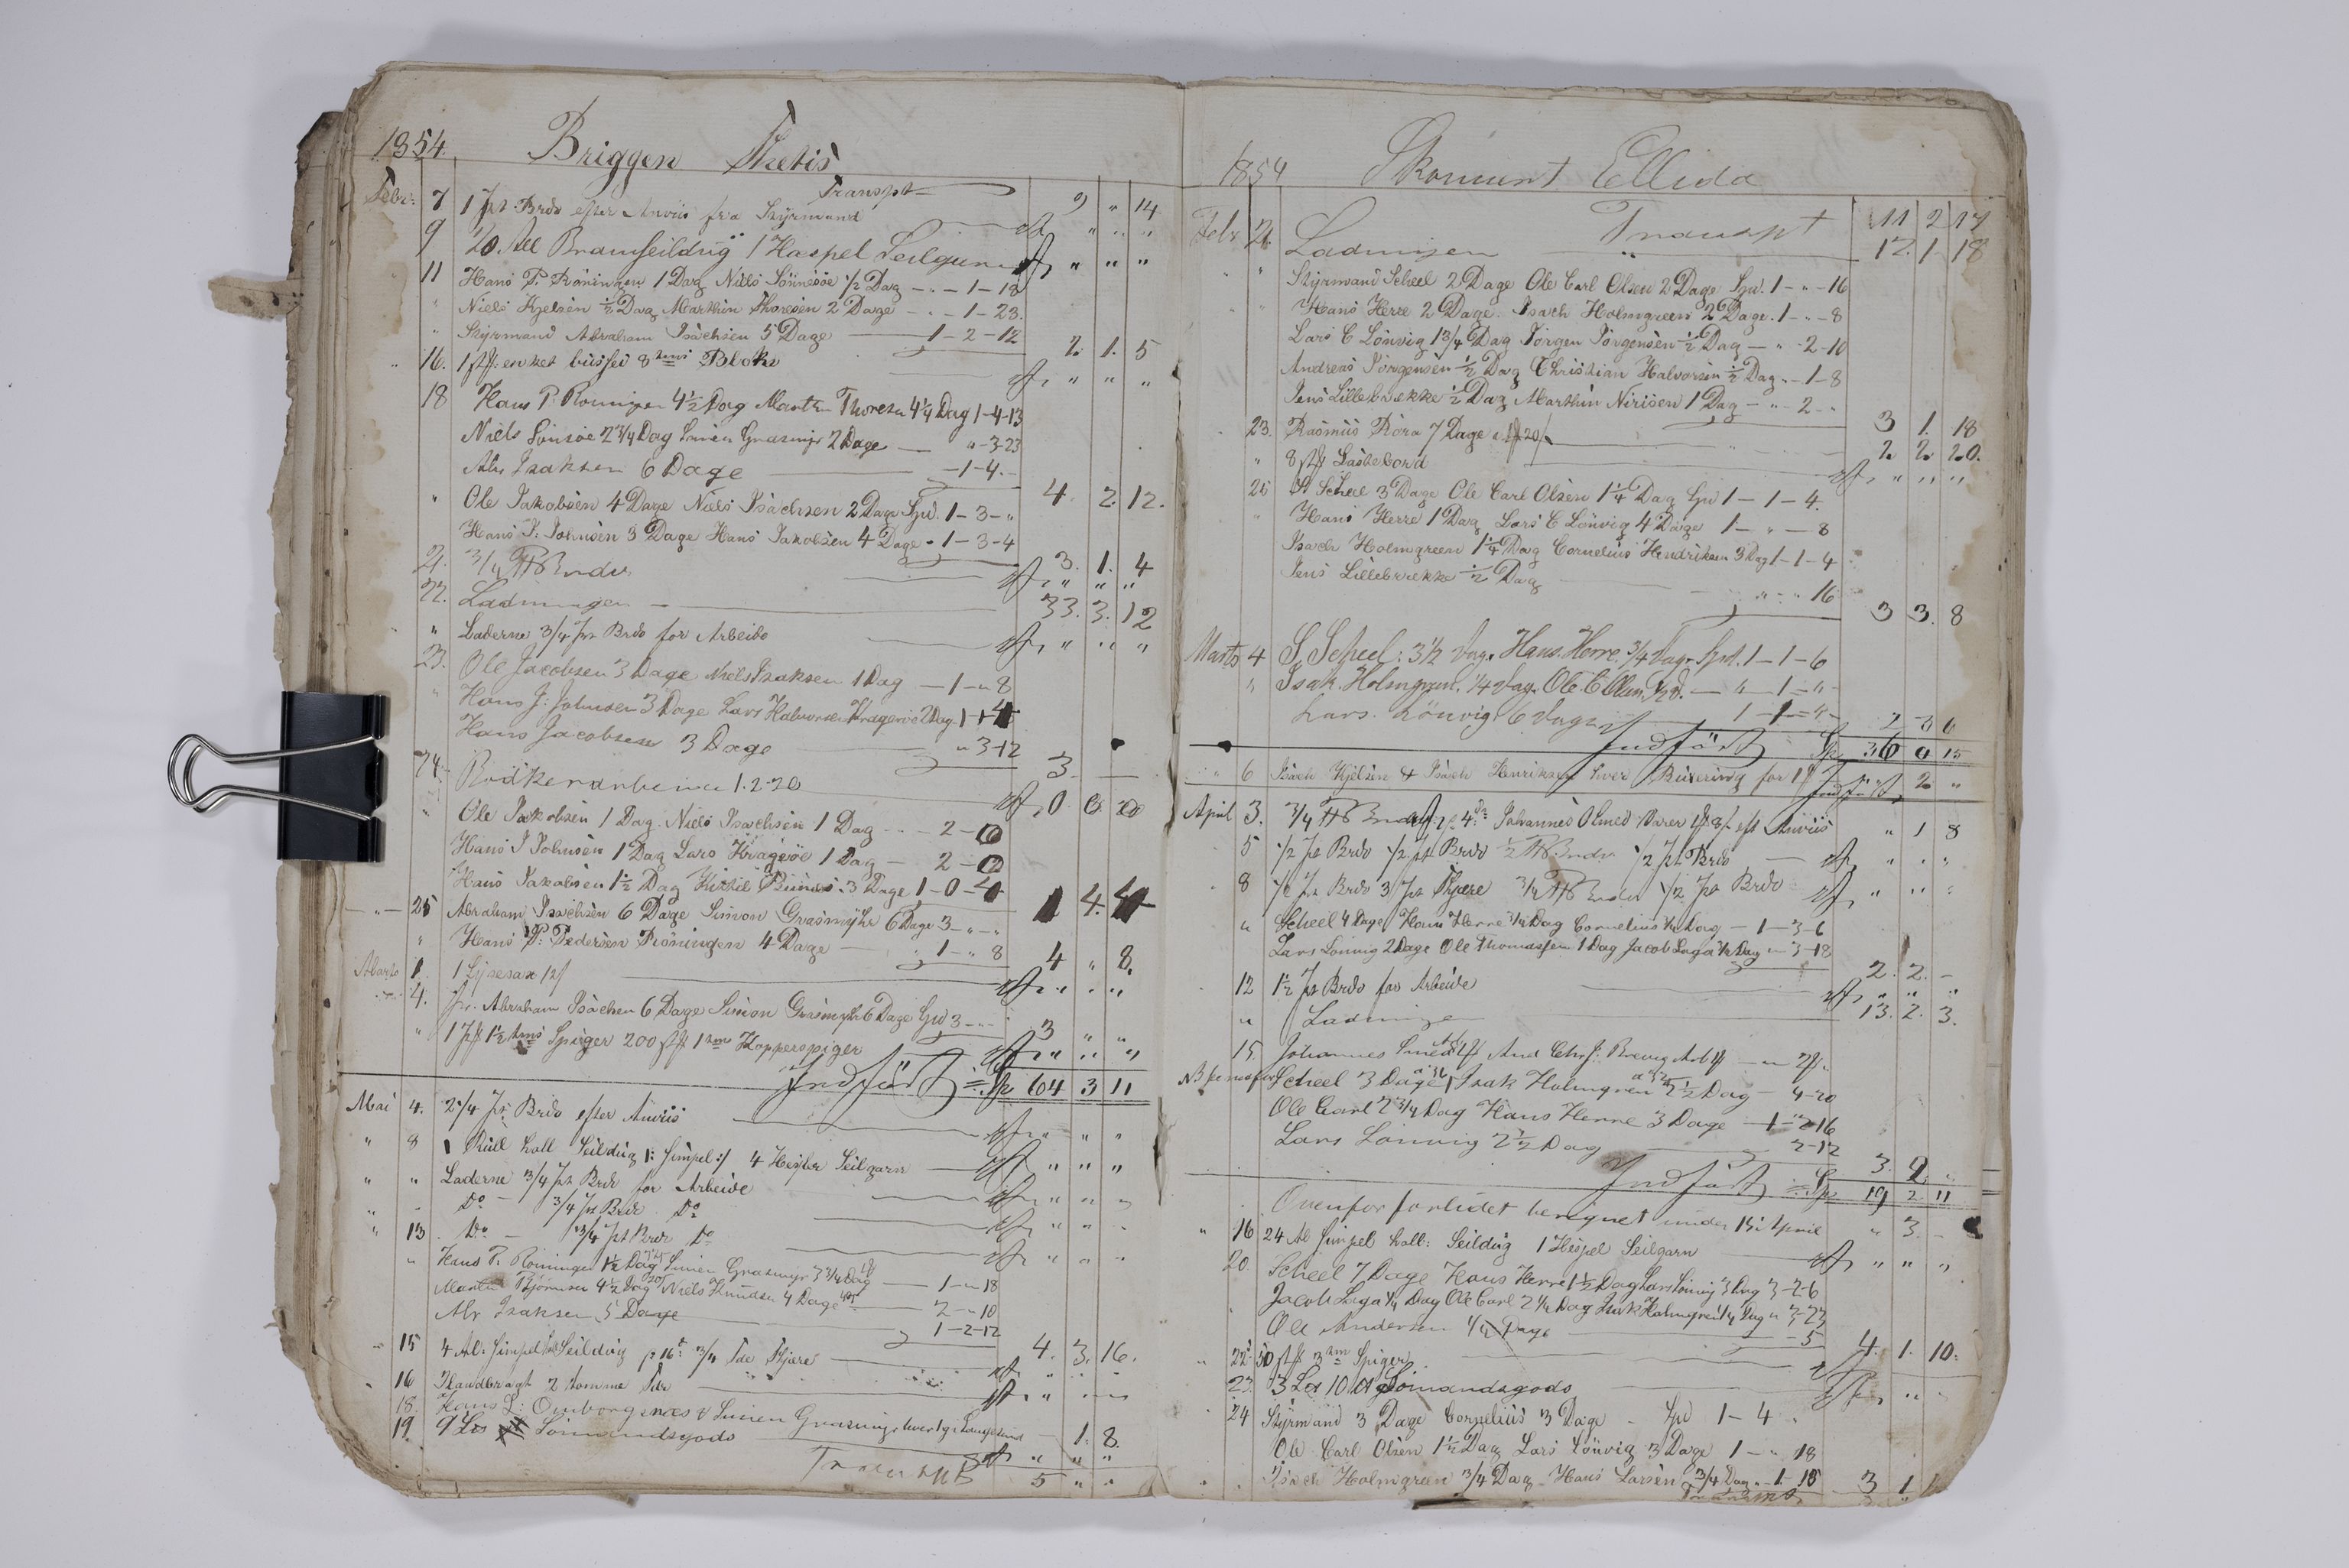 1854. Briggen Thetis
Transpt 9 " 14
Febr: 7 1 pt Brdv efter Anviis fra Styrmand " " "
9 20 All Bramseildug 1 Haspel Seilgarn " " "
11 Hans P. Röningen 1 Dag Niels Sönnesöe 1/2 Dag - " - 1 - 18
" Niels Kjelsen 1/2 Dag Marthin Thoresen 2 Dage - " - 1 - 23.
" Styrmand Abraham Isachsen 5 Dage 1 - 2 - 12 2. 1. 5
" 16. 1 st enket büsset 8 Tms Blok " " "
18 Hans P. Roningen 4 1/2 Dag Marthin Thoresen 4 1/4 Dag 1-4-13
Niels Sönsöe 2 3/4 Dag Simen Grasmyr 2 Dage " - 3-23
Abr. Isaksen 6 Dage - 1 - 4 - 4. 2. 12.
" Ole Jakobsen 4 Dage Niels Isachsen 2 Dage Spd. 1 - 3 - "
Hans J. Johnsen 3 Dage Hans Jakobsen 4 Dage - 1 - 3 - 4 3. 1. 4
21. 3/4 Brdv " " "
22. Ladningen 33. 3. 12
" Laderne 3/4 pt Brdv for Arbeide " " "
23. Ole Jacobsen 3 Dage Niels Isaksen 1 Dag - 1 - " 8
" Hans J. Johnsen 3 Dage Lars Halvorsen Kragerøe 2 Dag 1-1-4
Hans Jacobsen 3 Dage " 3-12 3. —
24. 1.2-20 0. 0. 20
" Ole Jakobsen 1 Dag. Niels Isachsen 1 Dag - - 2 -
Hans J Johnsen 1 Dag Lars Kragerøe 1 Dag - 2 -
Hans Jakobsen 1 1/2 Dag 3 Dage 1 - 0 - 4.
- " - 25 Abraham Isachsen 6 Dage Simon Grasmyhr 6 Dage 3 - " - "
" Hans P: Pedersen Röningen 4 Dage 1 - " 8 4 " 8.
Marts 1. 1 " "
4. Abraham Isachen 6 Dage Simon Grasmyhr 6 Dage Spd 3 - " - 3 " "
" 1 st 1 1/2 Tms Spiger 200 st 1 Tm Kopperspiger " " "
Indfört = Sp 64 3 11
Mai 4. 2 1/4 pt Brdv efter Anviis " " "
" 8 1 Rüll hall Seildug 1: simpel :/ 4 Hespler Seilgarn " " "
" " Laderne 3/4 pt Brdv for Arbeide " " "
" " Do - 3/4 pt Brdv Do " " "
" 13. Do - 3/4 pt Brdv Do " " "
" Hans P. Röningen 1 1/2 Dag Simen Grasmyr 3 3/4 Dag - 1 - " 18
4 1/2 Dag Niels Knudsen 4 Dage - 2 - " 10
Abr Isaksen 5 Dage 1-2-12 4. 3. 16.
" 15 4 Al: simpel hall Seildug 3/4 Tde Tjære
16 2 tomme Tdr " " "
18. Hans L: Omborgsnæs & Simen Grasmyr 1. 8.
19. 9 Sömandsgods " " "
Transpt 5 " "
1854 Skonnert Ellida
Transpt 11 2 17
Febr 21. Ladningen 12. 1 18
" Styrmand Scheel 2 Dage Ole Carl Olsen 2 Dage Spd. 1 - " - 16
" Hans Herre 2 Dage. Isach Holmgreen 2 Dage. 1 - " - 8
Lars C Lönvig 1 3/4 Dag Jörgen Jörgensen 1/2 Dag - " - 2 - 10
Andreas Jörgensen 1/2 Dag Christian Halvorsen 1/2 Dag " - 1 - 8
Jens Lillebække 1/2 Dag Marthin Nirisen 1 Dag - " - 2 - " 3 1. 18
23. Rasmüs Röra 7 Dage 2. 2. 20.
" 8 st Lastebord " " "
25 St Scheel 3 Dage Ole Carl Olsen 1 1/4 Dag Spd 1 - 1 - 4.
" Hans Herre 1 Dag Lars C Lönvig 4 Dage 1 - " - 8
Isach Holmgreen 1 1/4 Dag Cornelius Hendriksen 3 Dag 1 - 1 - 4
Jens Lillebække 1/2 Dag " - " 16 3 3. 8
Marts 4 S. Scheel: 3 1/2 Dag. Hans. Herre. 3/4 Dag. Spd. 1 - 1 - 6
" Isak. Holmgren. 1/4 Dag. Ole C Olsen - " - 1 - " -
Lars. Lönvig 6 Dage 1 - 1 - " - 2 3 6
Indfört Sp. 36 0 15
" 6 Isach Kjelsen & Isach Henriksen hver Büxering for 1 Indfört 2. "
April 3. 3/4 Brdv Johannes Olmed Varer eft Anviis " 1 8
5 1/2 pt Brdv 1/2 pt Brdv 1/2 Brdv 1/2 pt Brdv " " "
8 1/2 pt Brdv 3 pt Tjære 3/4 Brdv 1/2 pt Brdv " " "
" Scheel 4 Dage Hans Herre 3/4 Dag Cornelius 1/4 Dag - 1 - 3-6
Lars Lönvig 2 Dage Ole Thomassen 1 Dag Jacob Laga 1/2 Dag " 3-18 2. 2. -
12 1 1/2 pt Brdv for Arbeide " " "
" Ladninge 13. 2. 3.
15. Johannes
Scheel 3 Dage Isak Holmgren 2 1/2 Dag - 4-20
Ole Carl 2 3/4 Dag Hans Herre 3 Dage 1 - 2 16
Lars Lönvig 2 1/2 Dag 2-12 3. 2. "
Indfört = Sp 19 2 11
Ovenfor forlidet beregnet under 15: April " 3. -
" 16 24 Al simpel hall: Seildug 1 Hespel Seilgarn " " "
20 Scheel 7 Dage Hans Herre 1 1/2 Dag Lars Lönvig 3 Dag 3-2-6
Jacob Laga 1/4 Dag Ole Carl 2 1/4 Dag Isak Holmgren 1/4 Dag " 3-23
Ole Andersen 1/4 Dage - 5 4. 1. 10.
" 22 50 st 3 Tm Spiger
23. 3 10 Sömandsgods " "
24 Styrmand 3 Dage Cornelius 3 Dage - Spd 1 - 4 "
Ole Carl Olsen 1 1/2 Dag Lars Lönvig 3 Dage 1 - " 18
Isach Holmgreen 3/4 Dag Hans Larsen 3/4 Dag " 1 - 18 3 1
Transpt